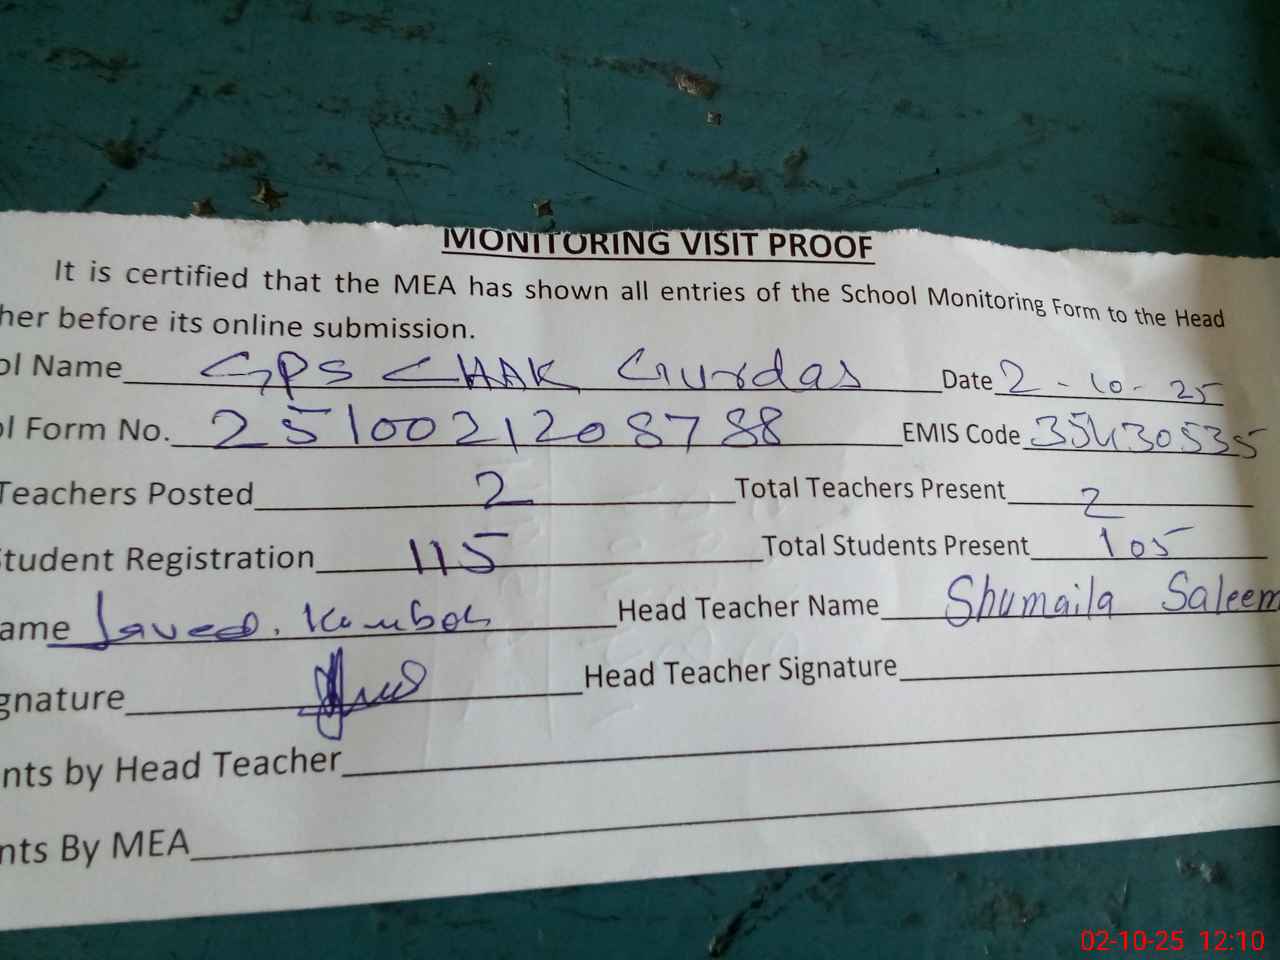 MONITORING VISIT PROOF
It is certified that the MEA has shown all entries of the School Monitoring Form to the Head
her before its online submission.
ol Name GPS CHAK Gurdas Date 2-10-25
ol Form No. 2510021208788 EMIS Code 35430535
Teachers Posted 2 Total Teachers Present 2
Student Registration 115 Total Students Present 105
ame Javed. Kamboh Head Teacher Name Shumaila Saleem
gnature Head Teacher Signature
nts by Head Teacher
nts By MEA
02-10-25 12:10